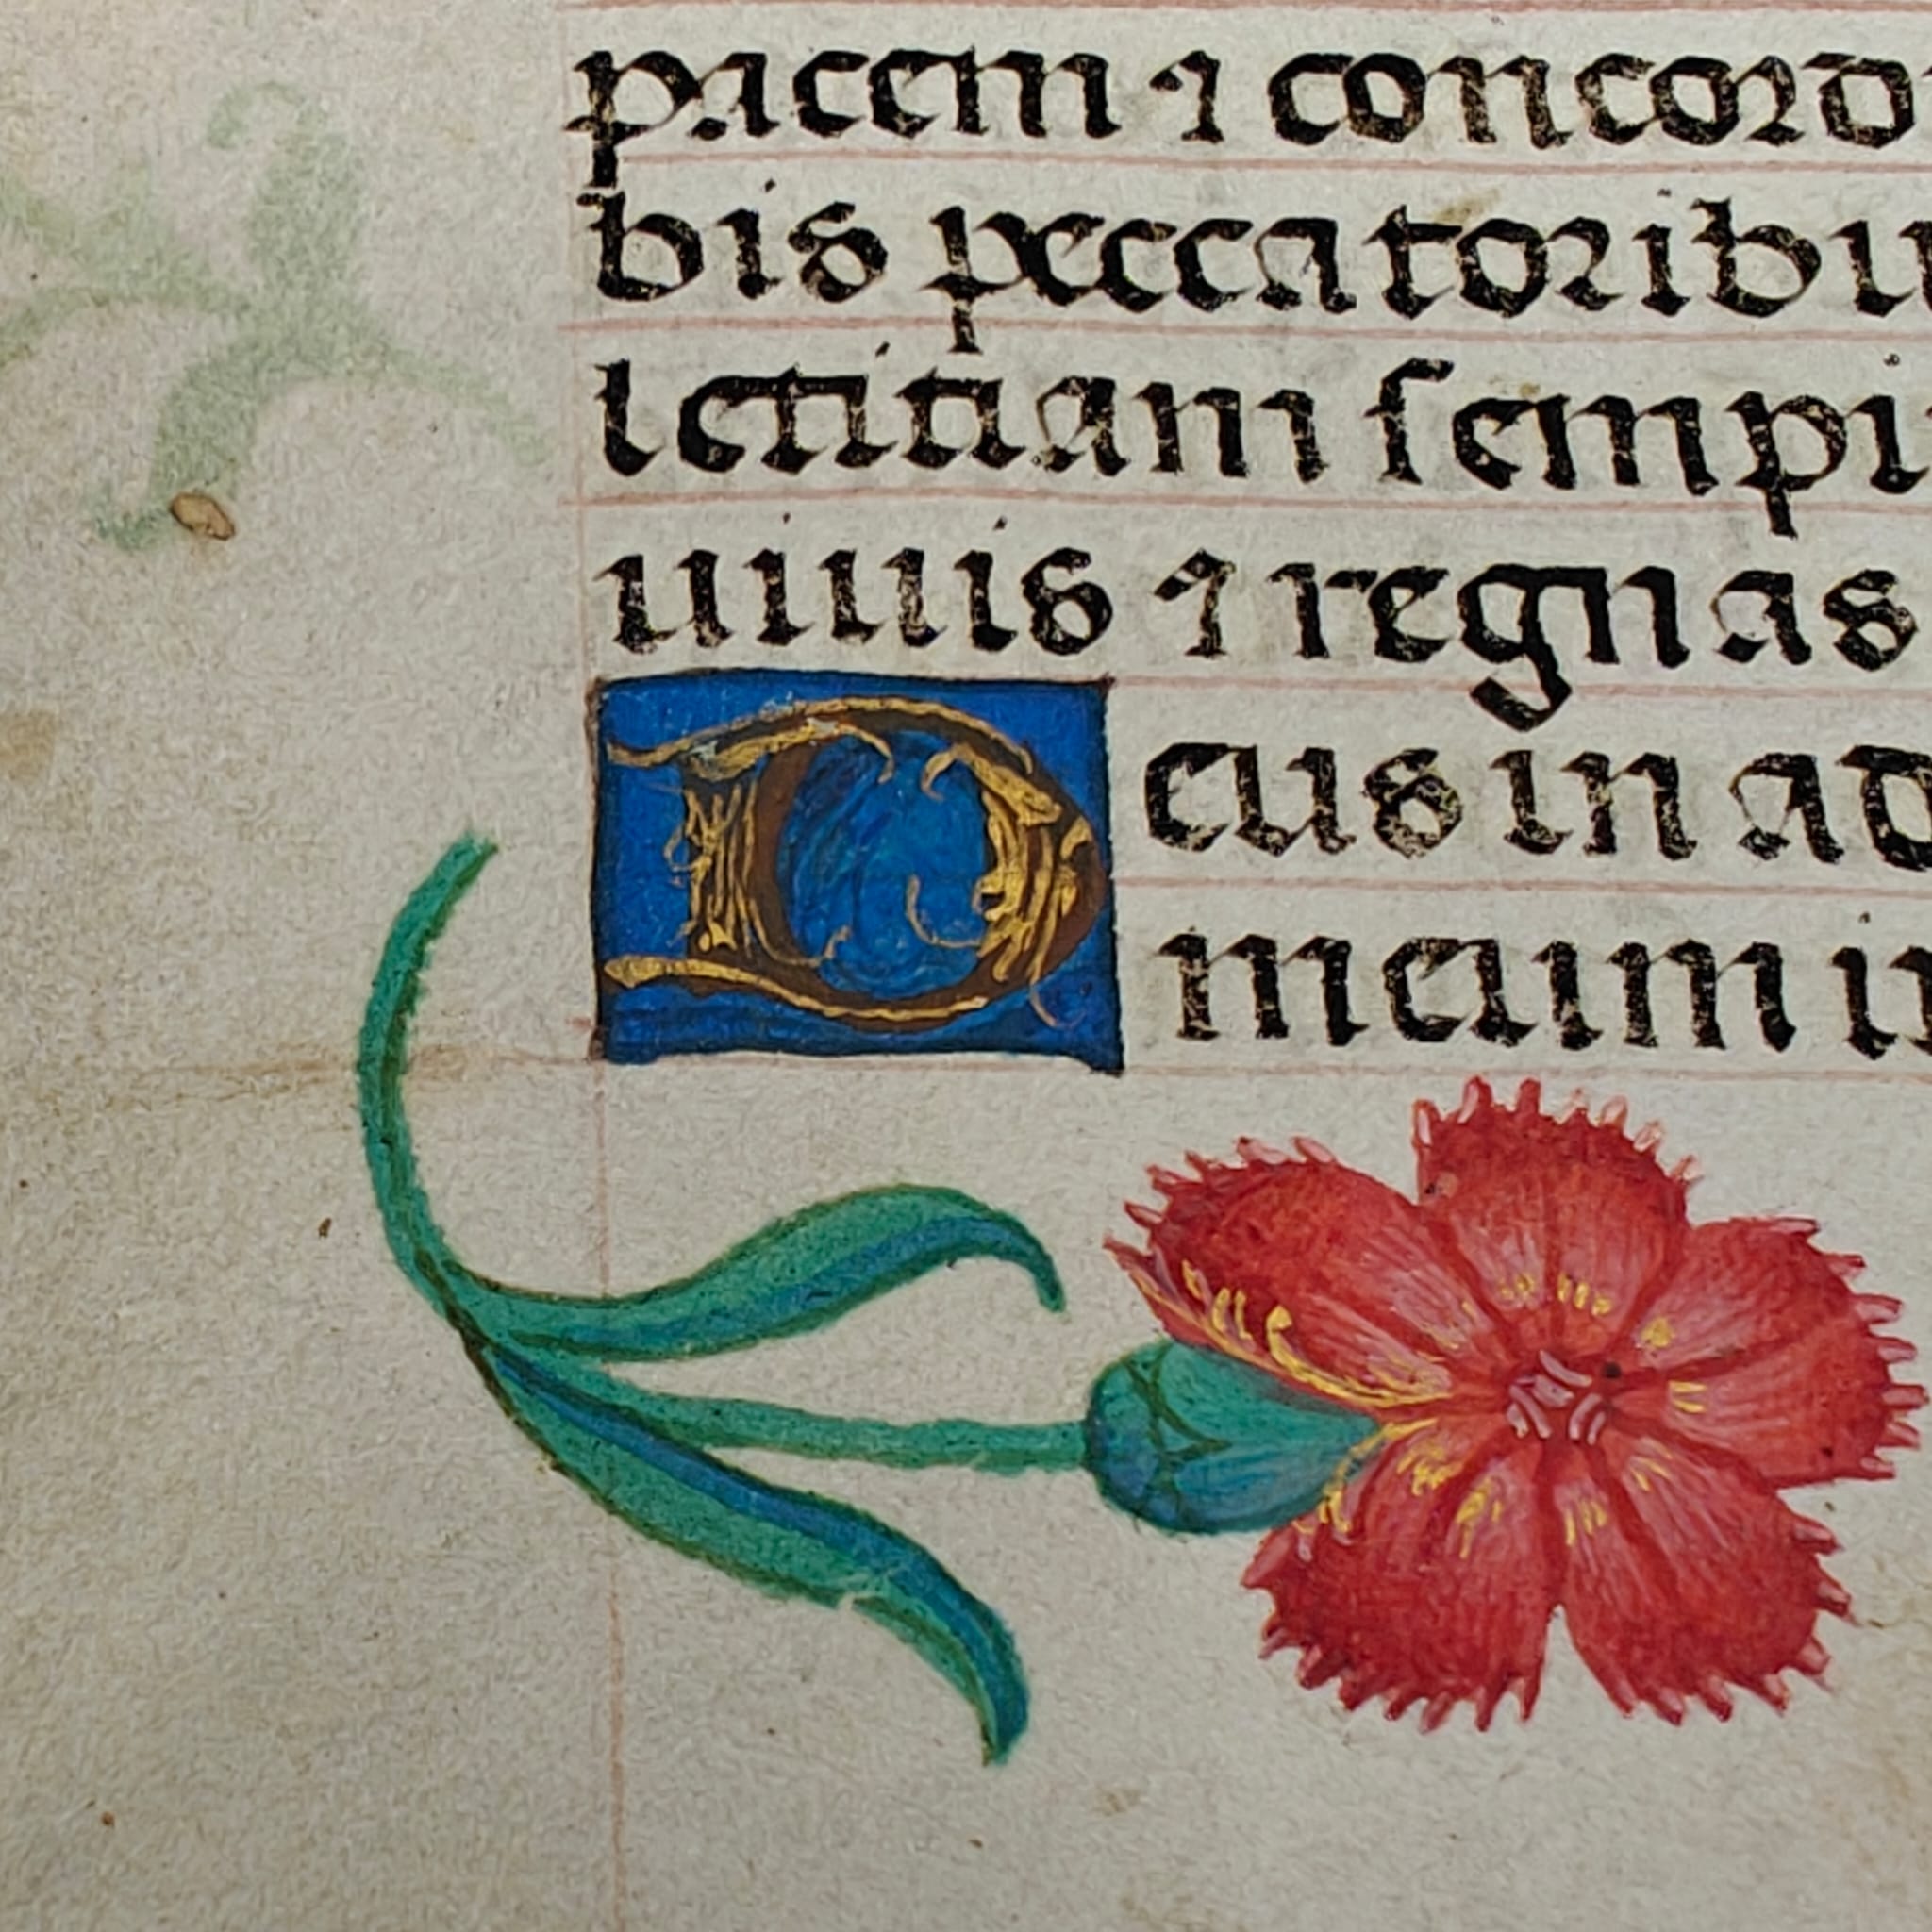 pacem ⁊ concord
bis peccatoribu
letitiam sempi
uiuis ⁊ regnas
Deus in ad
meum in